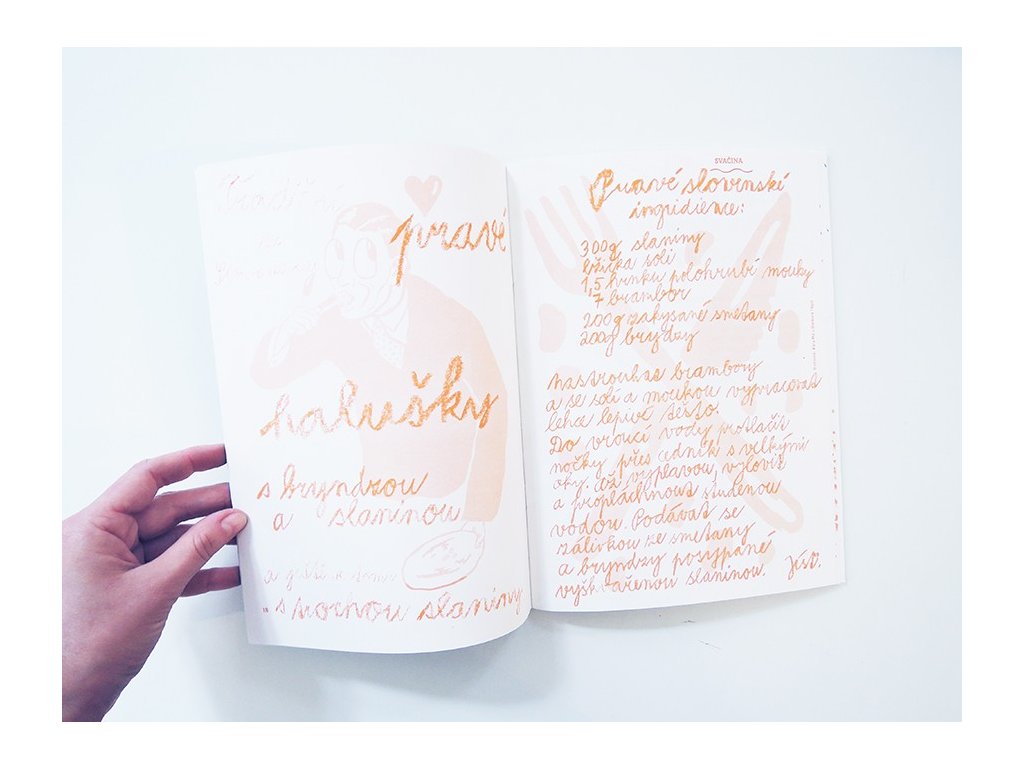 pravé
halušky
s bryndzou
a slaninou
a
s trochou slaniny
SVAČINA
Pravé slovenské
ingridience:
300g slaniny
lžička soli
1,5 hrnku polohrubé mouky
7 brambor
200g zakysané smetany
200g bryndzy
Nastrouhat brambory
a se solí a moukou vypracovat
lehce lepivé těsto.
Do vroucí vody protlačit
nočky přes cedník s velkými
oky. Až vyplavou, vylovit
a propláchnout studenou
vodou. Podávat se
zálivkou ze smetany
a bryndzy posypané
vyškvařenou slaninou. Jíst.